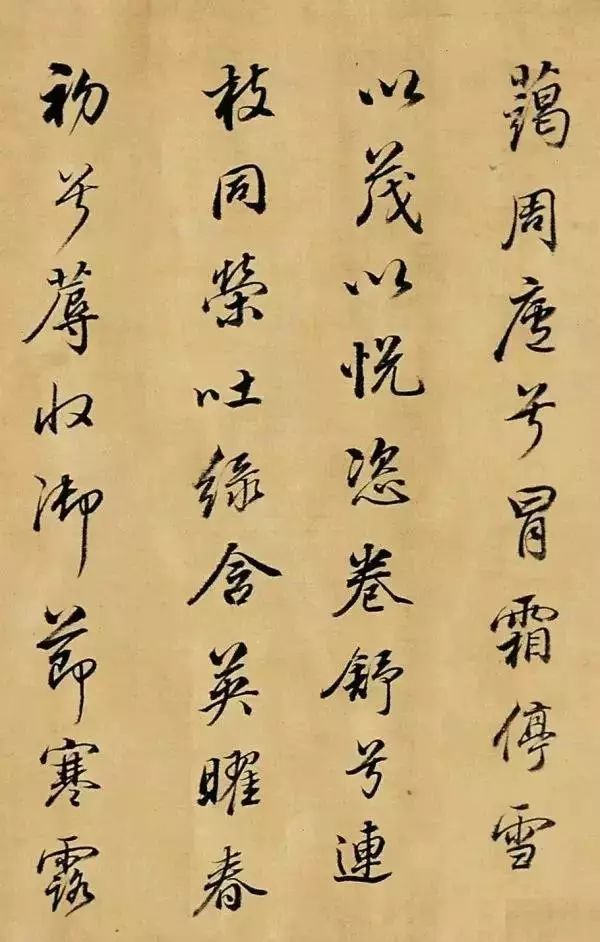 藹周廬兮冒霜停雪
以茂以悦恣卷舒兮連
枝同榮吐緑含英曜春
初兮蓐收御節寒露